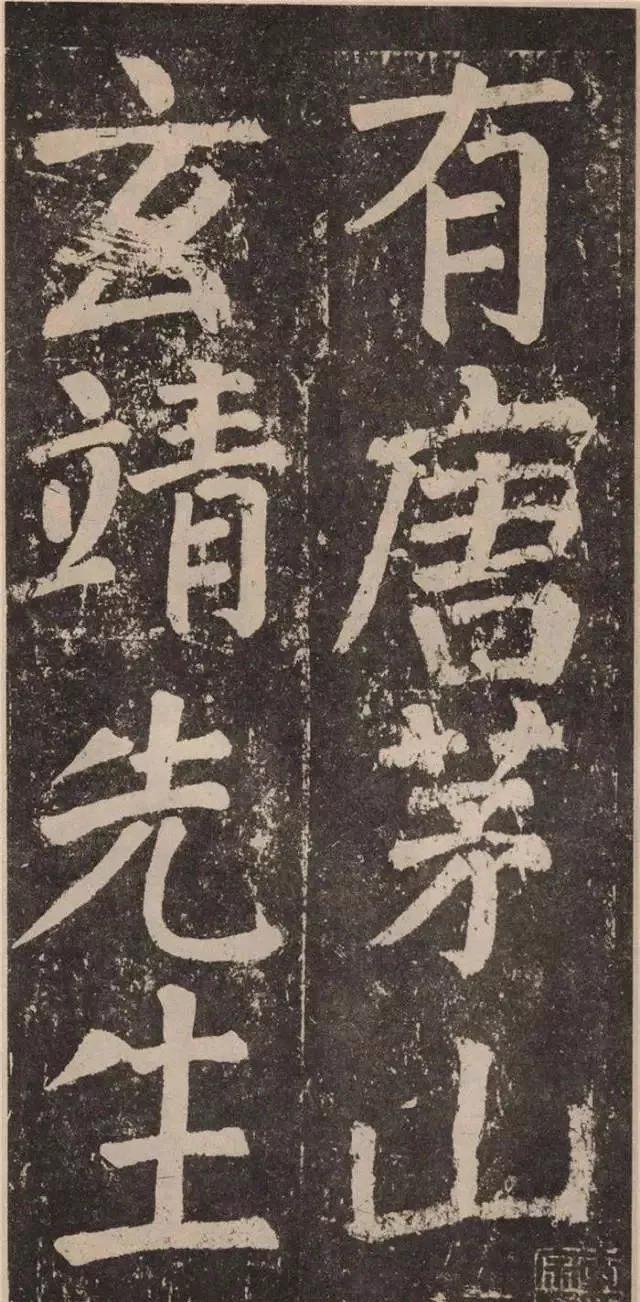 有唐茅山
玄靖先生